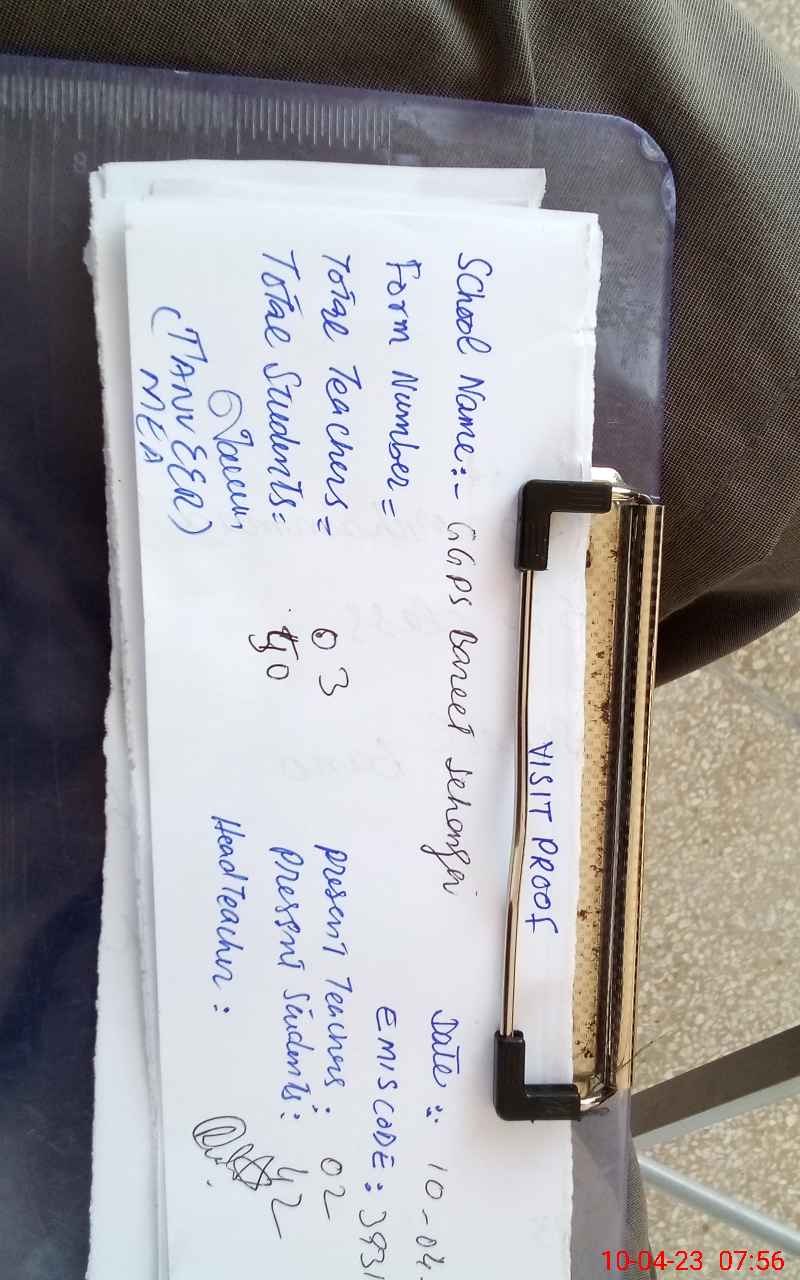 VISIT PROOF
School Name:- GGPS Bareet Jehangir Date: 10-04-
Form Number = EMIS CODE: 3931
Total Teachers = 03 present Teachers: 02
Total Students= present Students: 42
Head Teacher:
(TANVEER)
MEA
8
10-04-23 07:56